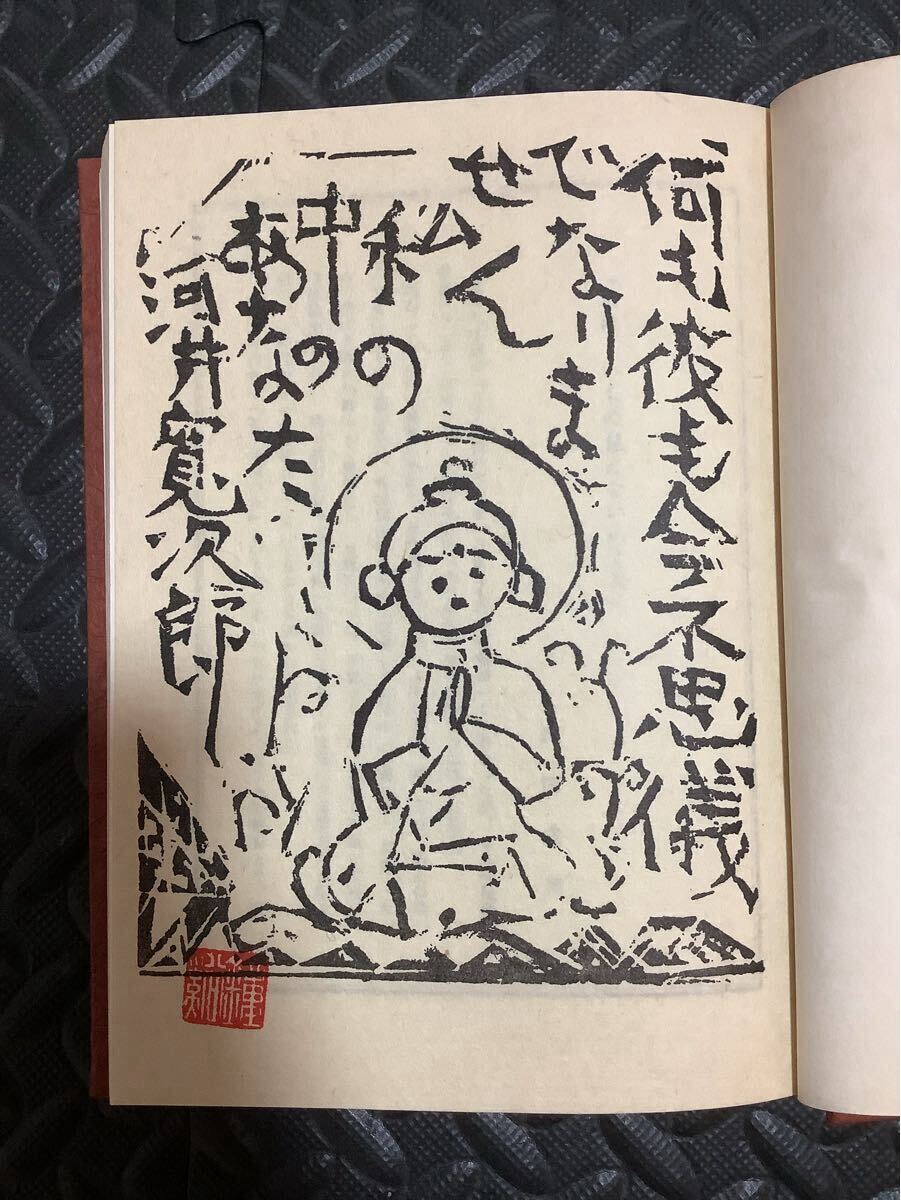 何も彼も 不思儀
でなりま
せん
私の
中の
あなた
河井寛次郎